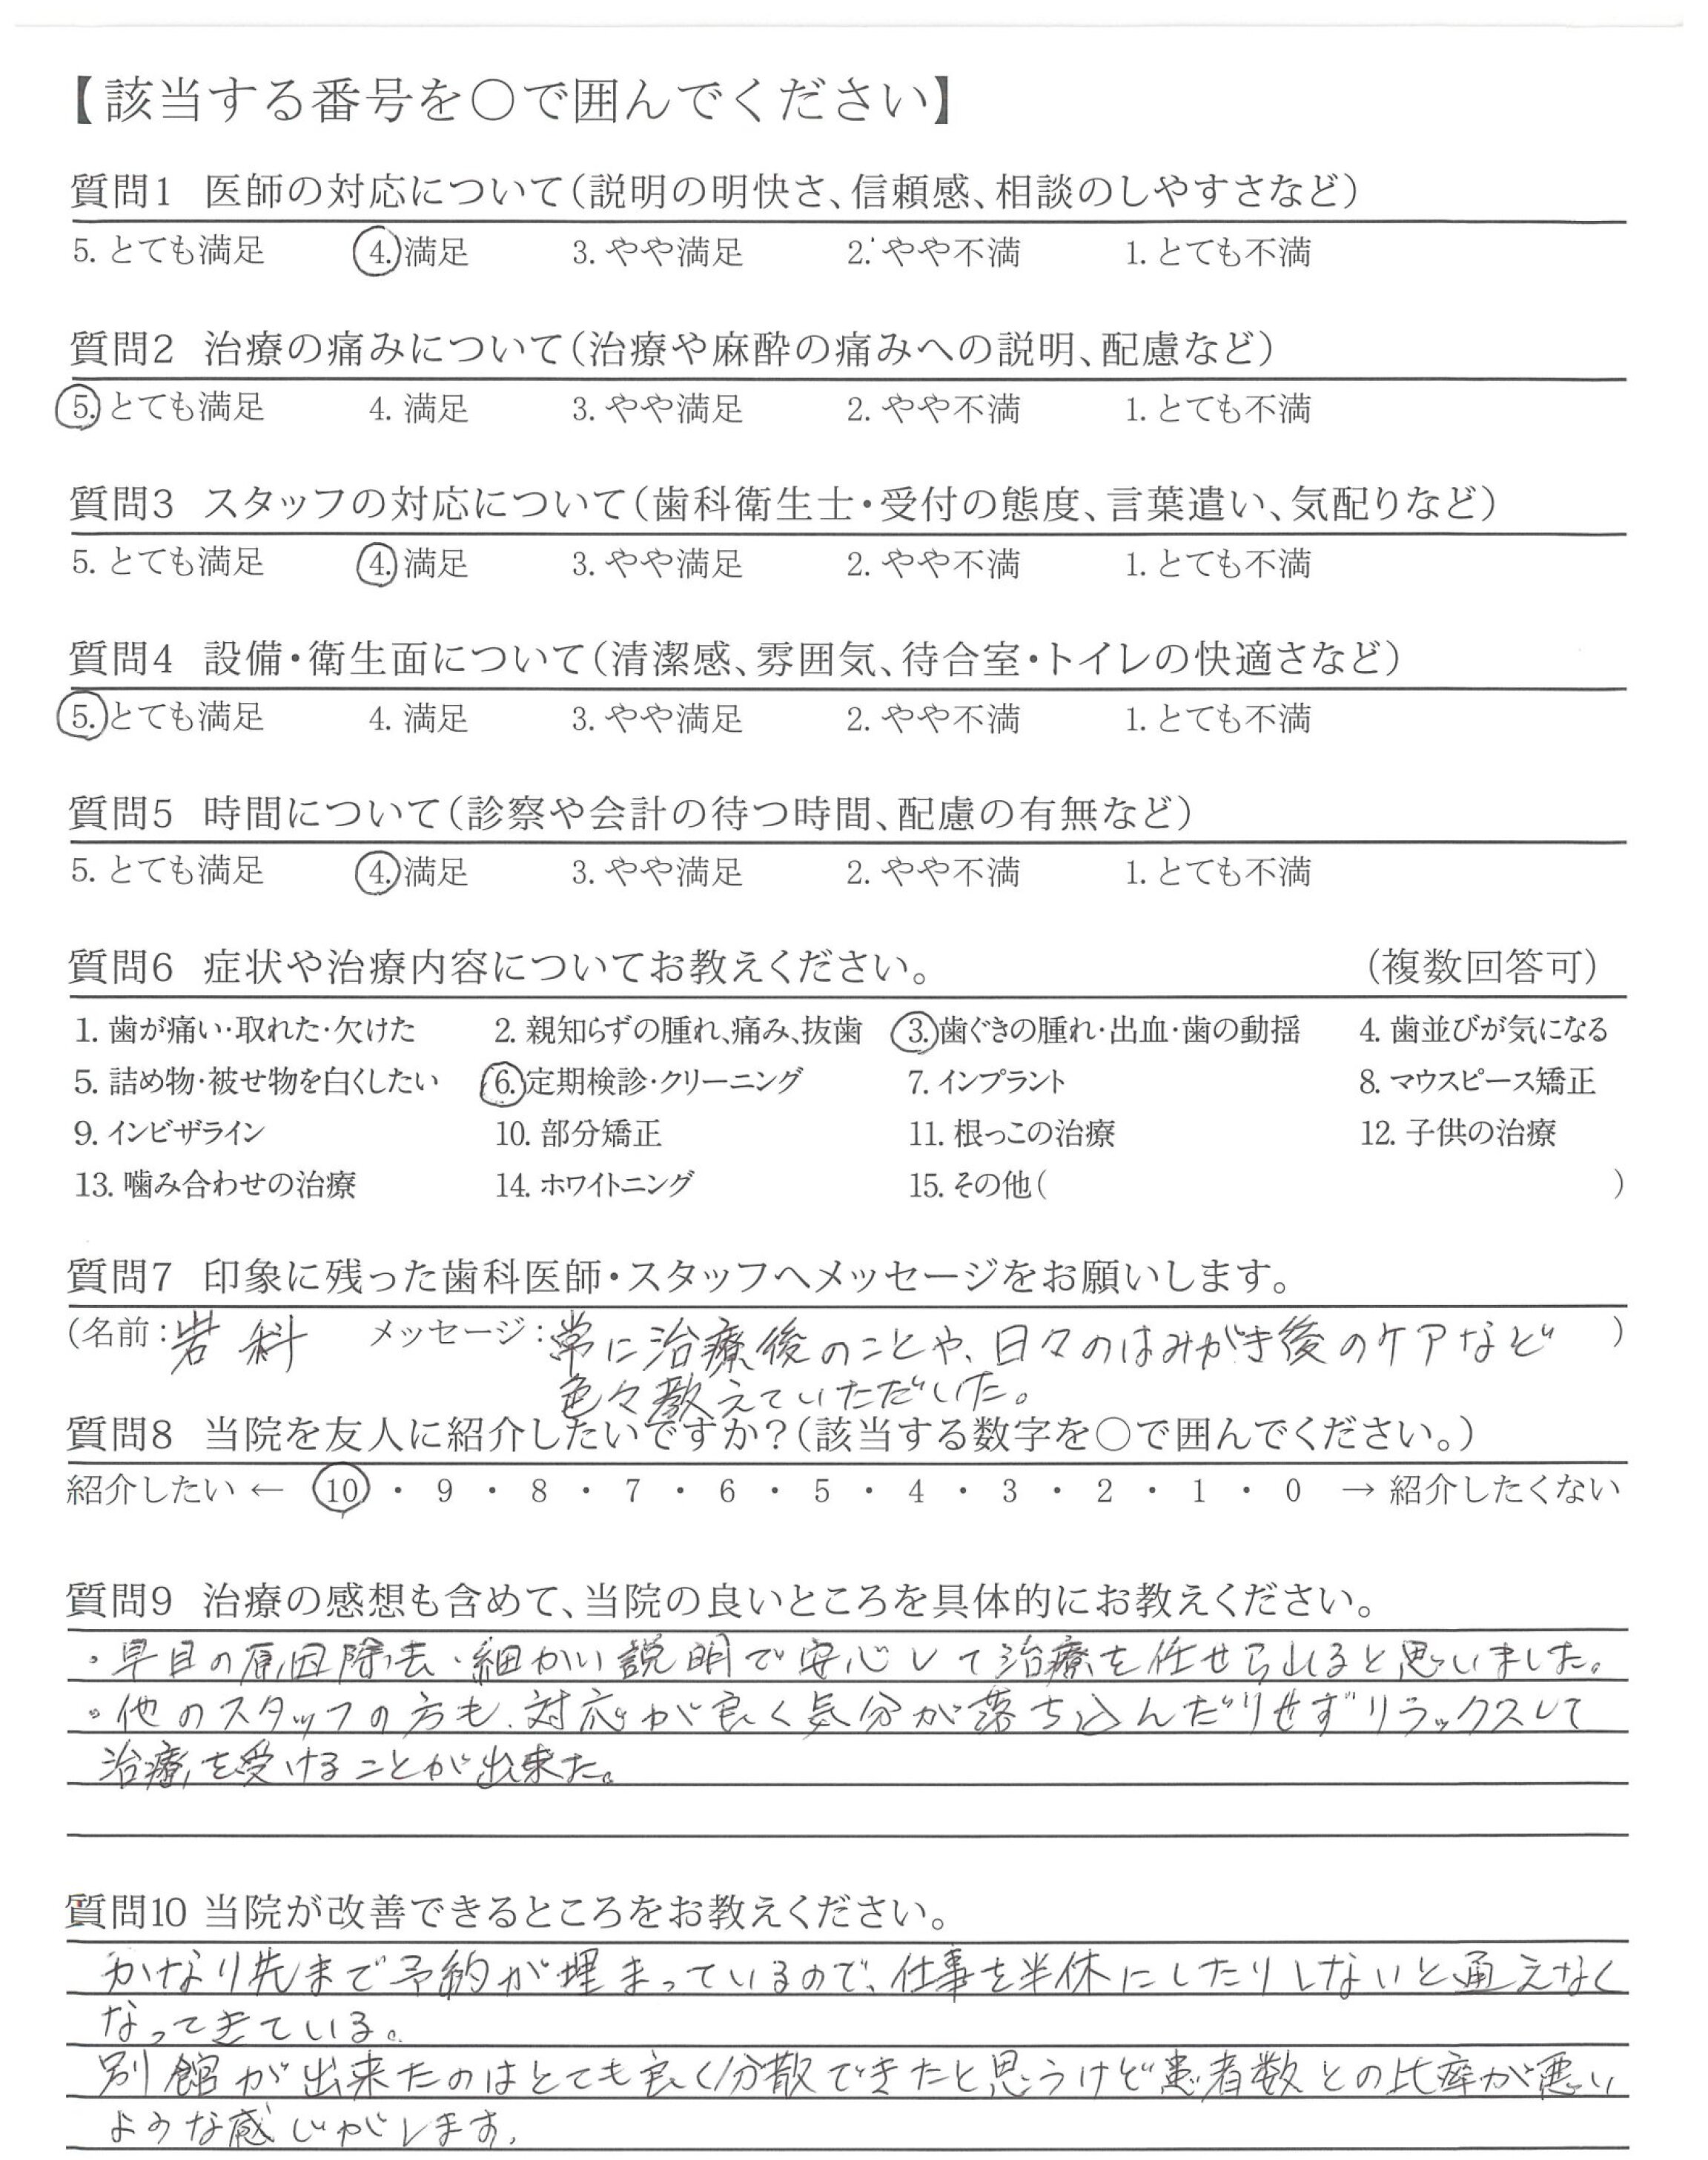 【該当する番号を○で囲んでください】
質問1 医師の対応について(説明の明快さ、信頼感、相談のしやすさなど)
5. とても満足 4. 満足 3. やや満足 2. やや不満 1. とても不満
質問2 治療の痛みについて(治療や麻酔の痛みへの説明、配慮など)
5. とても満足 4. 満足 3. やや満足 2. やや不満 1. とても不満
質問3 スタッフの対応について(歯科衛生士・受付の態度、言葉遣い、気配りなど)
5. とても満足 4. 満足 3. やや満足 2. やや不満 1. とても不満
質問4 設備・衛生面について(清潔感、雰囲気、待合室・トイレの快適さなど)
5. とても満足 4. 満足 3. やや満足 2. やや不満 1. とても不満
質問5 時間について(診察や会計の待つ時間、配慮の有無など)
5. とても満足 4. 満足 3. やや満足 2. やや不満 1. とても不満
質問6 症状や治療内容についてお教えください。 (複数回答可)
1. 歯が痛い・取れた・欠けた 2. 親知らずの腫れ、痛み、抜歯 3. 歯ぐきの腫れ・出血・歯の動揺 4. 歯並びが気になる
5. 詰め物・被せ物を白くしたい 6. 定期検診・クリーニング 7. インプラント 8. マウスピース矯正
9. インビザライン 10. 部分矯正 11. 根っこの治療 12. 子供の治療
13. 噛み合わせの治療 14. ホワイトニング 15. その他( )
質問7 印象に残った歯科医師・スタッフへメッセージをお願いします。
(名前:岩科 メッセージ:常に治療後のことや、日々のはみがき後のケアなど )
色々教えていただいた。
質問8 当院を友人に紹介したいですか?(該当する数字を○で囲んでください。)
紹介したい ← 10 ・ 9 ・ 8 ・ 7 ・ 6 ・ 5 ・ 4 ・ 3 ・ 2 ・ 1 ・ 0 → 紹介したくない
質問9 治療の感想も含めて、当院の良いところを具体的にお教えください。
・早目の原因除去、細かい説明で安心して治療を任せられると思いました。
・他のスタッフの方も、対応が良く気分が落ち込んだりせずリラックスして
治療を受けることが出来た。
質問10 当院が改善できるところをお教えください。
かなり先まで予約が埋まっているので、仕事を半休にしたりしないと通えなく
なってきている。
別館が出来たのはとても良く分散できたと思うけど患者数との比率が悪い
ような感じがします。